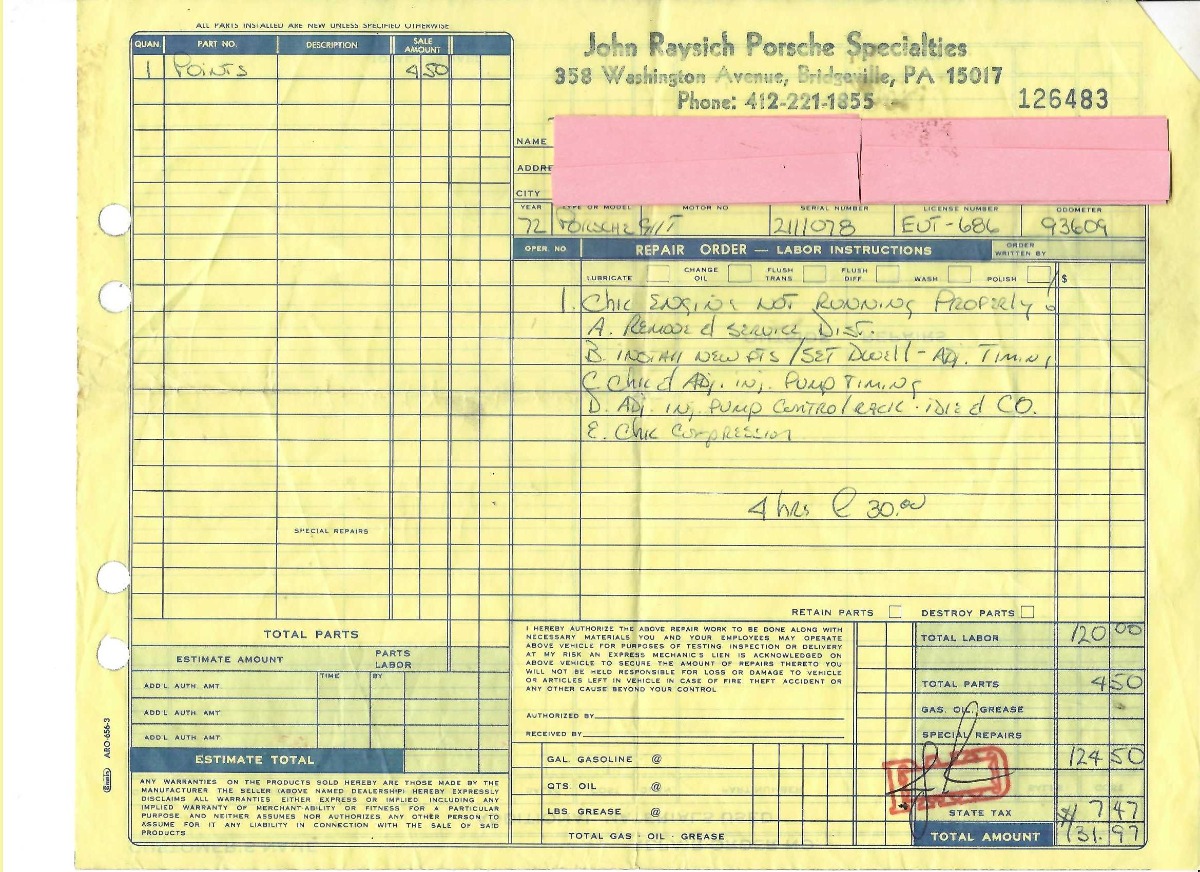 ALL PARTS INSTALLED ARE NEW UNLESS SPECIFIED OTHERWISE
QUAN. PART NO. DESCRIPTION SALE AMOUNT
1 POINTS 4 50
John Raysich Porsche Specialties
358 Washington Avenue, Bridgeville, PA 15017
Phone: 412-221-1855
126483
NAME
ADDRE
CITY
YEAR TYPE OR MODEL MOTOR NO SERIAL NUMBER LICENSE NUMBER ODOMETER
72 PORSCHE 911T 2111078 EUT-686 93609
OPER. NO. REPAIR ORDER — LABOR INSTRUCTIONS ORDER WRITTEN BY
LUBRICATE CHANGE OIL FLUSH TRANS FLUSH DIFF WASH POLISH $
1. CHK ENGINE NOT RUNNING PROPERLY
A. REMOVE & SERVICE DIST.
B. NEW PTS / SET DWELL - ADJ. TIMING
C. CHK & ADJ. INJ. PUMP TIMING
D. ADJ. INJ. PUMP CONTROL RACK - IDLE & CO.
E. CHK COMPRESSION
4 hrs @ 30.00
SPECIAL REPAIRS
RETAIN PARTS DESTROY PARTS
TOTAL PARTS
ESTIMATE AMOUNT PARTS LABOR
TIME BY
ADD'L AUTH. AMT.
ADD'L AUTH. AMT
ADD'L AUTH. AMT
ESTIMATE TOTAL
ANY WARRANTIES ON THE PRODUCTS SOLD HEREBY ARE THOSE MADE BY THE
MANUFACTURER THE SELLER (ABOVE NAMED DEALERSHIP) HEREBY EXPRESSLY
DISCLAIMS ALL WARRANTIES EITHER EXPRESS OR IMPLIED INCLUDING ANY
IMPLIED WARRANTY OF MERCHANT-ABILITY OR FITNESS FOR A PARTICULAR
PURPOSE AND NEITHER ASSUMES NOR AUTHORIZES ANY OTHER PERSON TO
ASSUME FOR IT ANY LIABILITY IN CONNECTION WITH THE SALE OF SAID
PRODUCTS
Ennis ARO-656-3
I HEREBY AUTHORIZE THE ABOVE REPAIR WORK TO BE DONE ALONG WITH
NECESSARY MATERIALS YOU AND YOUR EMPLOYEES MAY OPERATE
ABOVE VEHICLE FOR PURPOSES OF TESTING INSPECTION OR DELIVERY
AT MY RISK AN EXPRESS MECHANIC'S LIEN IS ACKNOWLEDGED ON
ABOVE VEHICLE TO SECURE THE AMOUNT OF REPAIRS THERETO YOU
WILL NOT BE HELD RESPONSIBLE FOR LOSS OR DAMAGE TO VEHICLE
OR ARTICLES LEFT IN VEHICLE IN CASE OF FIRE THEFT ACCIDENT OR
ANY OTHER CAUSE BEYOND YOUR CONTROL
AUTHORIZED BY
RECEIVED BY
GAL. GASOLINE @
QTS. OIL @
LBS GREASE @
TOTAL GAS - OIL - GREASE
TOTAL LABOR 120 00
TOTAL PARTS 4 50
GAS, OIL, GREASE
SPECIAL REPAIRS
124 50
STATE TAX 7 47
TOTAL AMOUNT $131.97